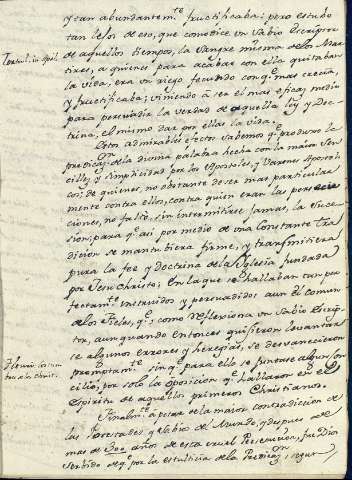 y tan abundantem.te fructificaba: pero estubo
tan lejos de eso, que como dice un Sabio Escriptor
Tertul. in Apol.
de aquellos tiempos, la Sangre misma de los Mar-
tires, a quienes para acabar con ella quitaban
la vida, era un riego fecundo con q.e mas crecia,
y fructificaba; viniendo à ser el mas eficaz medio
para persuadir la verdad de aquella ley y Doc-
trina, el mismo dar por ellas la vida.
Estos admirables efectos sabemos q.e produxo la
predicaz.on de la divina palabra hecha con la maior Sen-
cillez y simplicidad por los Apostoles, y Varones Apostoli-
cos; de quienes, no obstante de ser mas particular
mente contra ellos, contra quien eran las persecu-
ciones, no faltò, sin intermitirse jamas, la Suce-
sion; para q.e asi por medio de una constante tra-
dicion se mantubiera firme, y transmitiera
pura la fee y doctrina de la Iglesia fundada
por Jesu Christo; En la que se hallaban tan per-
fectam.te instruidos y persuadidos aun el comun
de los Fieles, q.e, como reflexiona un Sabio Escrip-
tor, aun quando entonces quisieron levantar
se algunos errores y heregias, se desvanecieron
promptam.te sin q.e para ello se juntase algun Con
cilio, por solo la oposicion q.e hallaron en el
Espiritu de aquellos primeros Christianos.
Finalm.te à pesar de la maior contradiccion de
las Potestades y Sabios del Mundo, y despues de
mas de 300 años de esta cruel Persecucion, fue Dios
servido de q.e por la estulticia de la Predicaz.on, segun